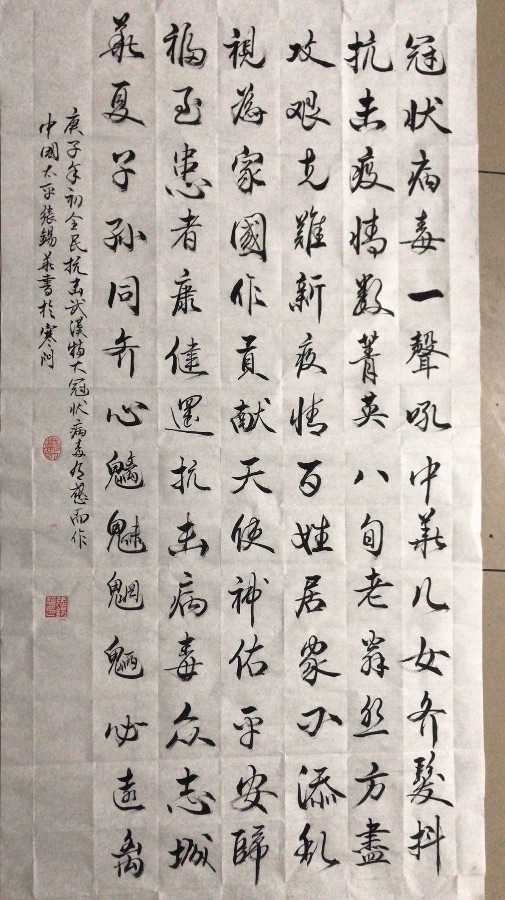 冠状病毒一聲吼中華儿女齐髮抖
抗击疫情数菁英八旬老翁然方盡
攻艰克難新疫情百姓居家不添乱
視為家國作貢献天使神佑平安歸
福至患者康健還抗击病毒众志城
華夏子孙同齐心魑魅魍魉必远离
庚子年初全民抗击武漢特大冠状病毒有感而作
中國太平張錫華書於寒門